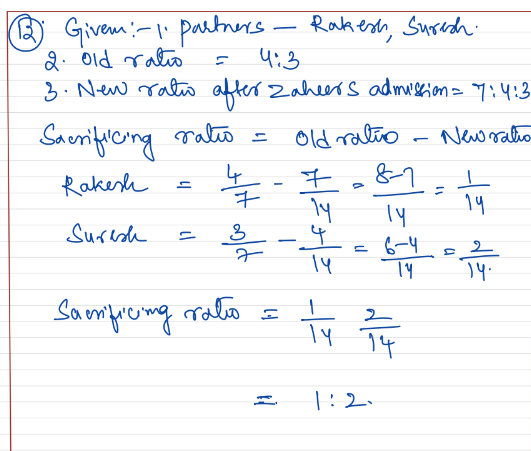 12) Given:- 1. partners — Rakesh, Suresh.
2. Old ratio = 4:3
3. New ratio after Zaheers admission = 7:4:3
Sacrificing ratio = Old ratio - New ratio
Rakesh = 4/7 - 7/14 = 8-7/14 = 1/14
Suresh = 3/7 - 4/14 = 6-4/14 = 2/14.
Sacrificing ratio = 1/14 2/14
= 1:2.